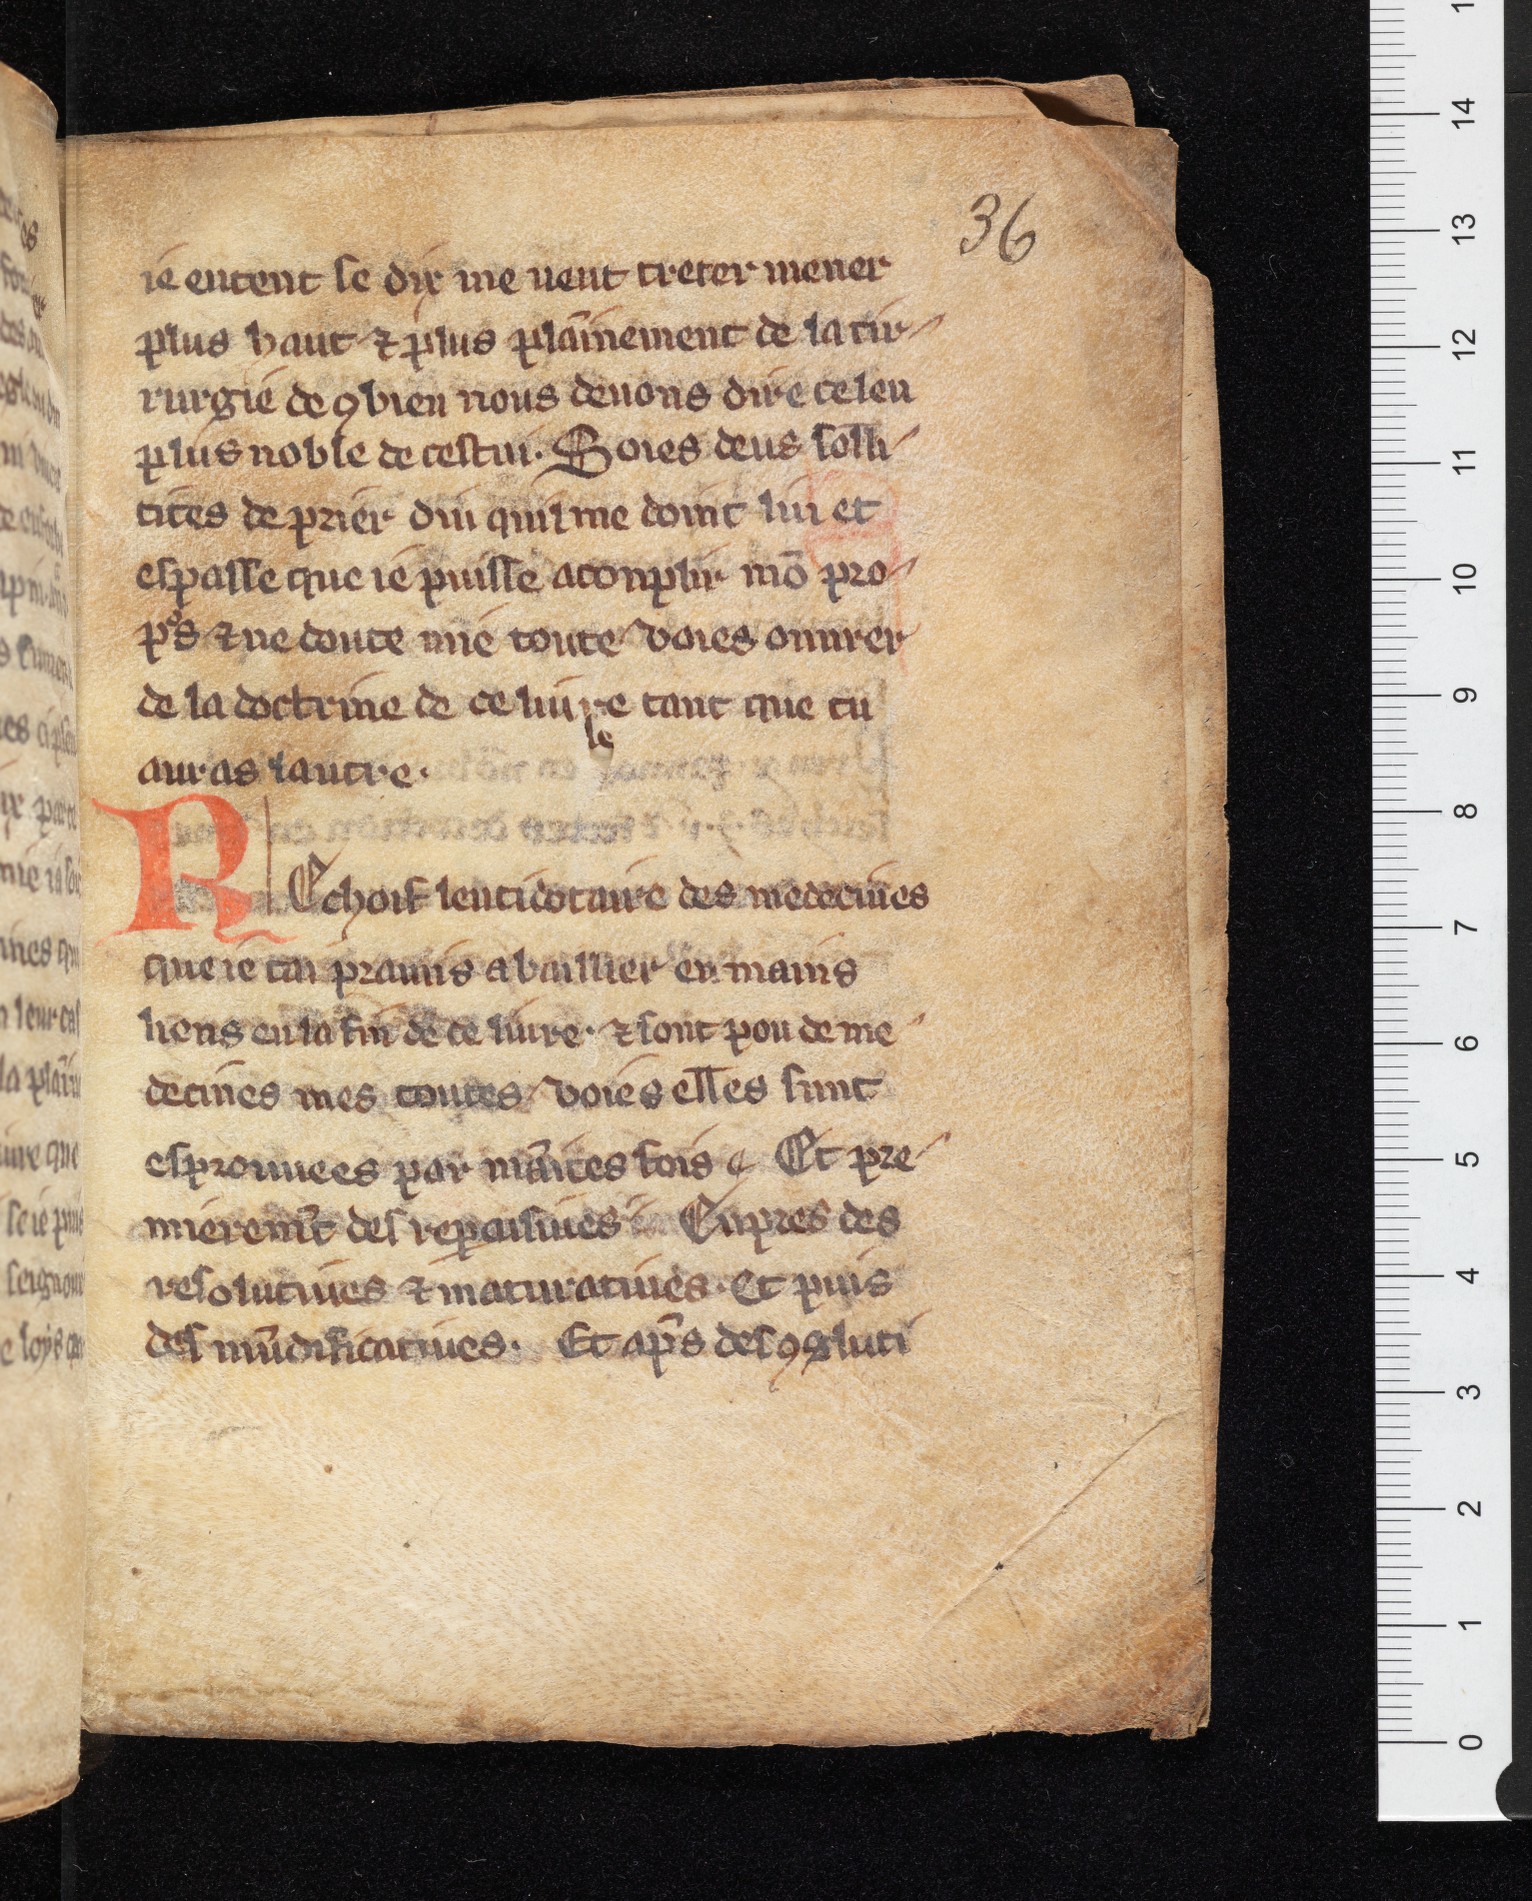 36
ie entent se dix me veut treter mener
plus haut ⁊ plus plāinement de la cir-
rurgie de ꝯbien nous deuons dire celeu
plus noble de cestui. Soies deus solli-
cites de prier diu quil me doint lui et
espasse que ie puisse aconplir mō pro-
pos ⁊ ne doute mie toute voies ouurer
de la doctrine de ce liure tant que tu
auras lautre.
le
REchoif lenticotaire des medecines
que ie tai pramis a baillier en mains
liens en la fin de ce liure. ⁊ sont pou de me-
decines mes toutes voies elles sunt
esprouuees par maītes fois Et pre-
mieremt̄ des repcusiues Enpres des
resolutiues ⁊ maturatiues. Et puis
des mūdificatiues. Et ap̄s des ꝯgluti
14
13
12
11
10
9
8
7
6
5
4
3
2
1
0